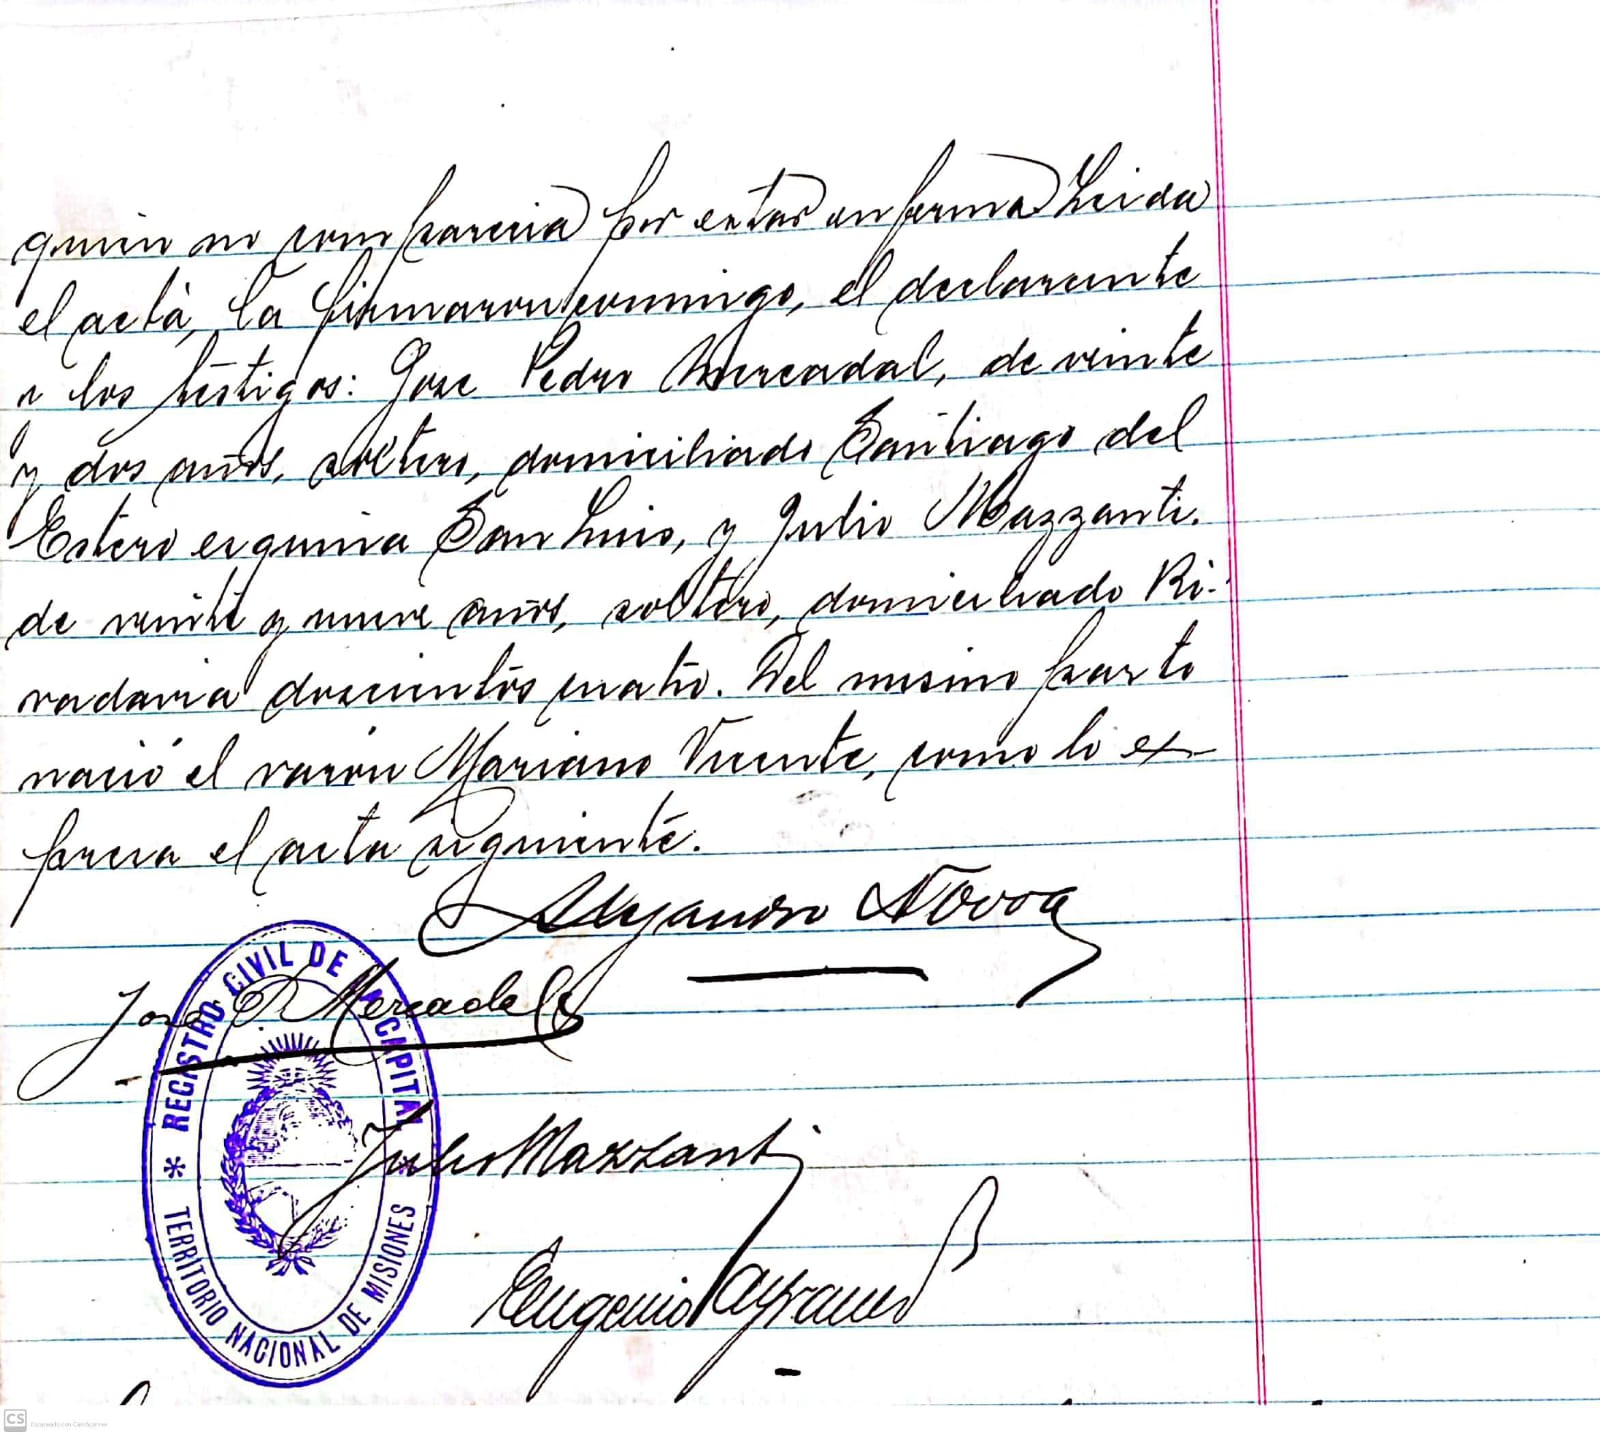 quien no comparecia por estar enferma Leida
el acta, la firmaron conmigo, el declarante
y los testigos: Jose Pedro Mercadal, de veinte
y dos años, soltero, domiciliado Santiago del
Estero esquina San Luis, y Julio Mazzanti.
de veinte y nueve años, soltero, domiciliado Ri-
vadavia doscientos cuatro. Del mismo parto
nació el varon Mariano Vicente, como lo ex-
presa el acta siguiente.
Alejandro Novoa
Jose P. Mercadal
Julio Mazzanti
Eugenio
REGISTRO CIVIL DE LA CAPITAL
* *
TERRITORIO NACIONAL DE MISIONES
CS Escaneado con CamScanner